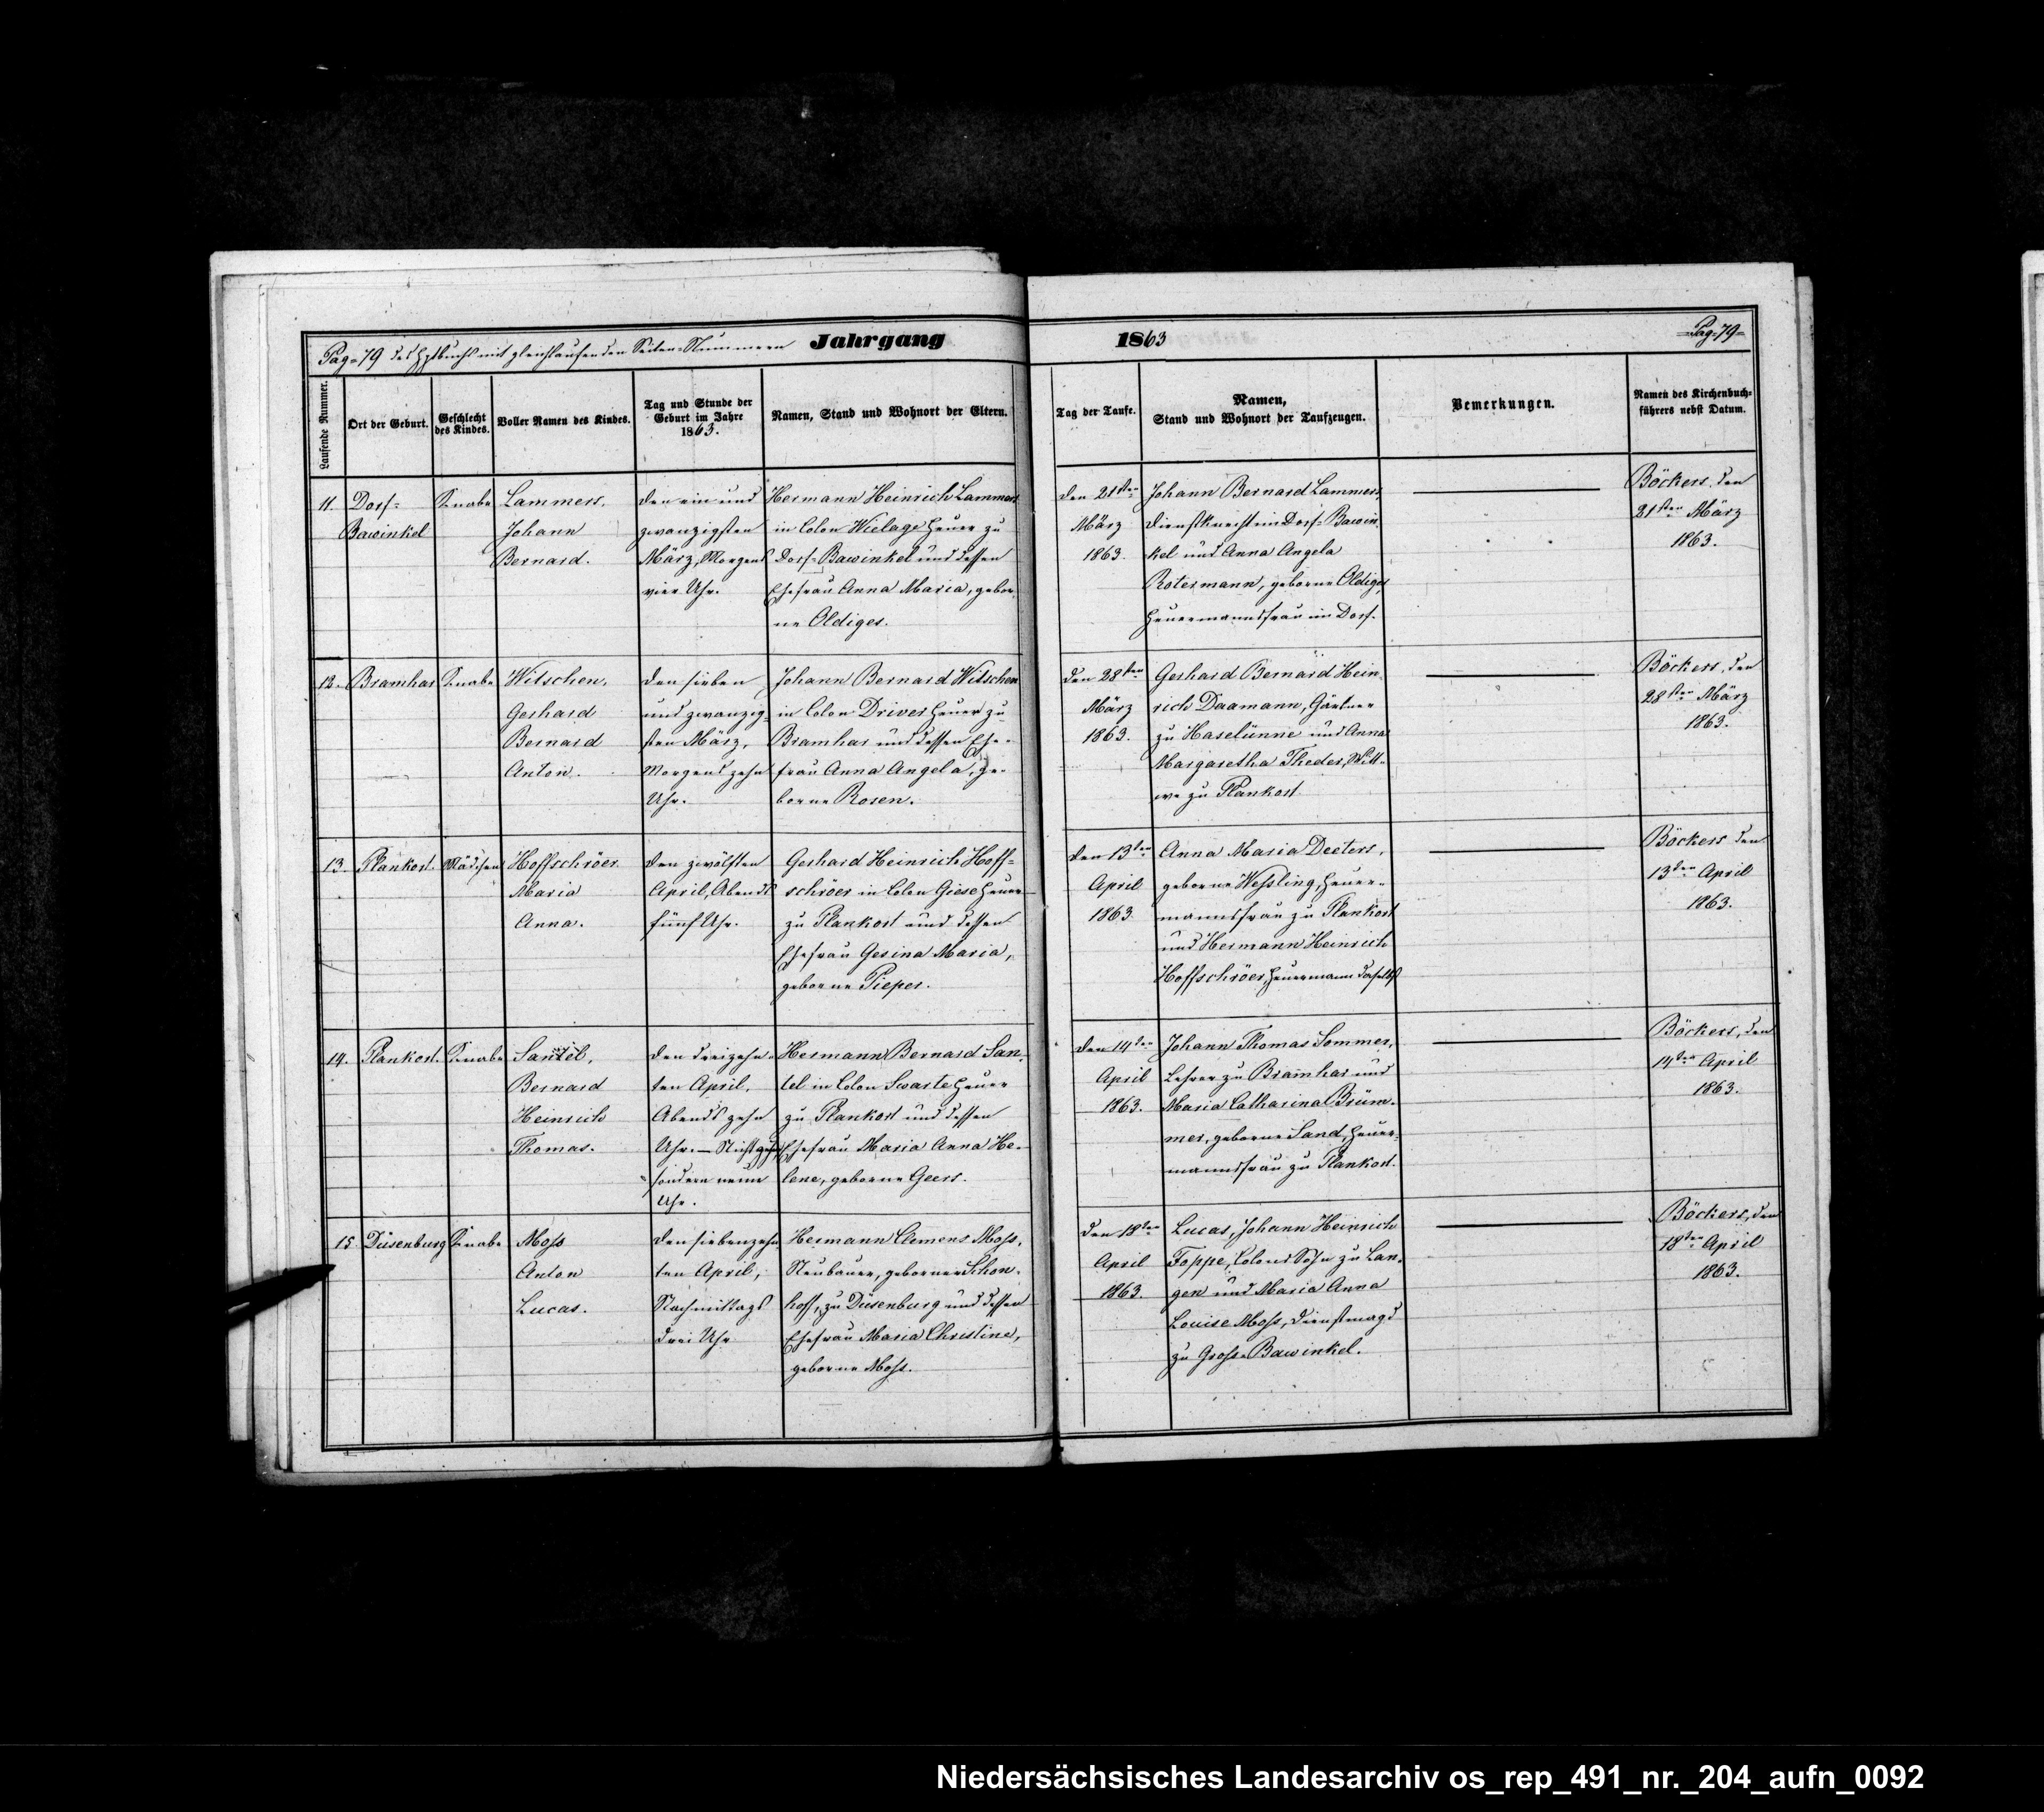 Pag. 79 des Hptbuchs mit gleichlaufenden Seiten-Nummern Jahrgang 1863 Pag. 79
Laufende Nummer.
Ort der Geburt.
Geschlecht
des Kindes.
Voller Namen des Kindes.
Tag und Stunde der
Geburt im Jahre
1863.
Namen, Stand und Wohnort der Eltern.
Tag der Taufe.
Namen,
Stand und Wohnort der Taufzeugen.
Bemerkungen.
Namen des Kirchenbuch-
führers nebst Datum.
11.
Dorf-
Bawinkel
Knabe
Lammers,
Johann
Bernard.
Den ein und
zwanzigsten
März, Morgens
vier Uhr.
Hermann Heinrich Lammers
in Colon Wielage Heuer zu
Dorf-Bawinkel und dessen
Ehefrau Anna Maria, gebor-
ne Oldiges.
Den 21sten
März
1863.
Johann Bernard Lammers,
Dienstknecht im Dorf-Bawin-
kel und Anna Angela
Rotermann, geborne Oldiges,
Heuermannsfrau im Dorf.
Böckers, den
21sten März
1863.
12.
Bramhar
Knabe
Witschen,
Gerhard
Bernard
Anton.
Den sieben
und zwanzig-
sten März,
Morgens zehn
Uhr.
Johann Bernard Witschen
in Colon Driver Heuer zu
Bramhar und dessen Ehe-
frau Anna Angela, ge-
borne Rosen.
Den 28sten
März
1863.
Gerhard Bernard Hein-
rich Daamann, Gärtner
zu Haselünne und Anna
Margaretha Theder, Witt-
we zu Plankost
Böckers, den
28sten März
1863.
13.
Plankost.
Mädchen
Hoffschröer
Maria
Anna.
Den zwölften
April, Abends
fünf Uhr.
Gerhard Heinrich Hoff-
schröer in Colon Giese Heuer
zu Plankost und dessen
Ehefrau Gesina Maria,
geborne Pieper.
Den 13ten
April
1863.
Anna Maria Deeters,
geborne Wessling, Heuer-
mannsfrau zu Plankost
und Hermann Heinrich
Hoffschröer, Heuermann daselbst
Böckers den
13ten April
1863.
14.
Plankost.
Knabe
Santel,
Bernard
Heinrich
Thomas.
Den dreizehn-
ten April,
Abends zehn
Uhr. — Nicht zehn,
sondern neun
Uhr.
Hermann Bernard San-
tel in Colon Swarte Heuer
zu Plankost und dessen
Ehefrau Maria Anna He-
lene, geborne Geers.
Den 14ten
April
1863.
Johann Thomas Sommer,
Lehrer zu Bramhar und
Maria Catharina Brüm-
mer, geborne Sand, Heuer-
mannsfrau zu Plankost.
Böckers, den
14ten April
1863.
15.
Düsenburg
Knabe
Moss
Anton
Lucas.
Den siebenzehn-
ten April,
Nachmittags
drei Uhr
Hermann Clemens Moss,
Neubauer, geborner Schon-
hoff, zu Düsenburg und dessen
Ehefrau Maria Christine,
geborne Moss.
Den 18ten
April
1863.
Lucas, Johann Heinrich
Foppe, Colons Sohn zu Lan-
gen und Maria Anna
Louise Moss, Dienstmagd
zu Gross-Bawinkel.
Böckers, den
18ten April
1863.
Niedersächsisches Landesarchiv os_rep_491_nr._204_aufn_0092